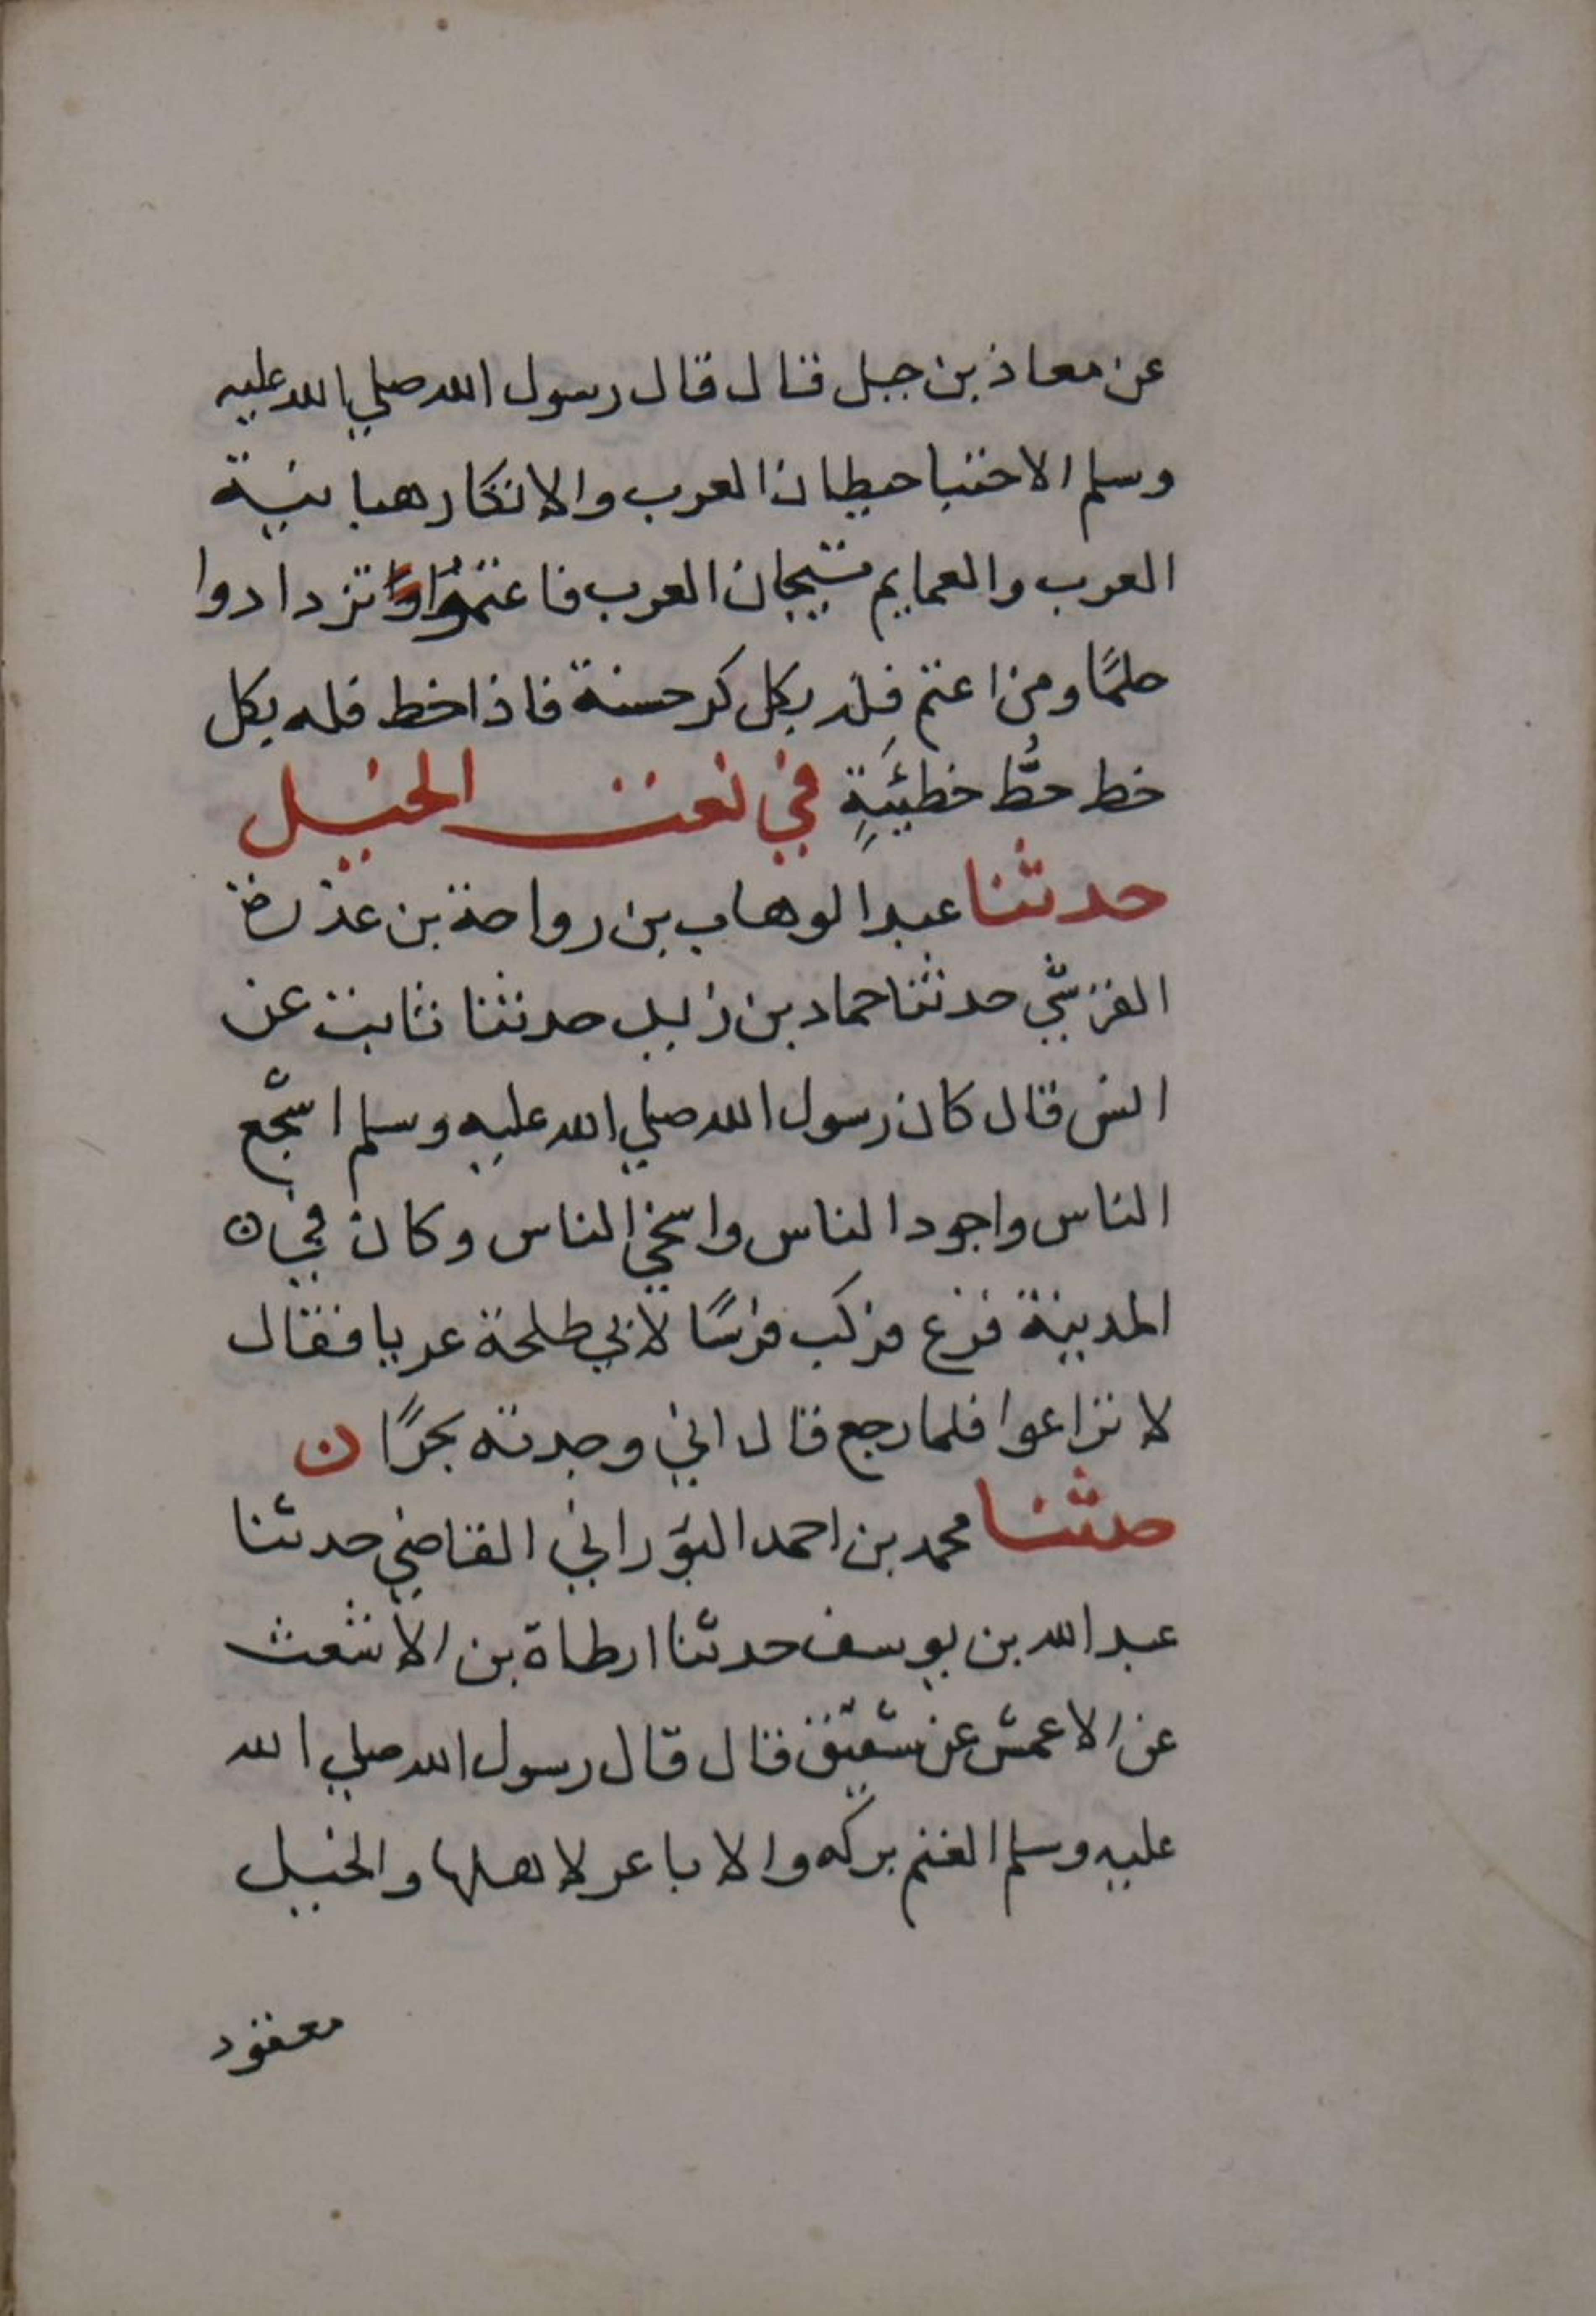 عن معاذ بن جبل قال قال رسول الله صلي الله عليه
وسلم الاحتبا حيطان العرب والاتكا رهبانية
العرب والعمايم تيجان العرب فاعتموا تزدادوا
حلمًا ومن اعتم فله بكل كر حسنة فاذا حط فله بكل
حط حُطّ خطيئَةٍ في نعت الخيل
حدثنا عبد الوهاب بن رواحة بن عذرة
القرشي حدثنا حماد بن زيد حدثنا ثابت عن
انس قال كان رسول الله صلي الله عليه وسلم اشجع
الناس واجود الناس واسخي الناس وكان في ن
المدينة فزع فركب فرسًا لابي طلحة عريا فقال
لا تراعوا فلما رجع قال اني وجدته بحرًا ن
حدثنا محمد بن احمد البوَراني القاضي حدثنا
عبد الله بن يوسف حدثنا ارطاة بن الاشعث
عن الاعمش عن شقيق قال قال رسول الله صلي الله
عليه وسلم الغنم بركه والاباعر لاهلها والخيل
معقود